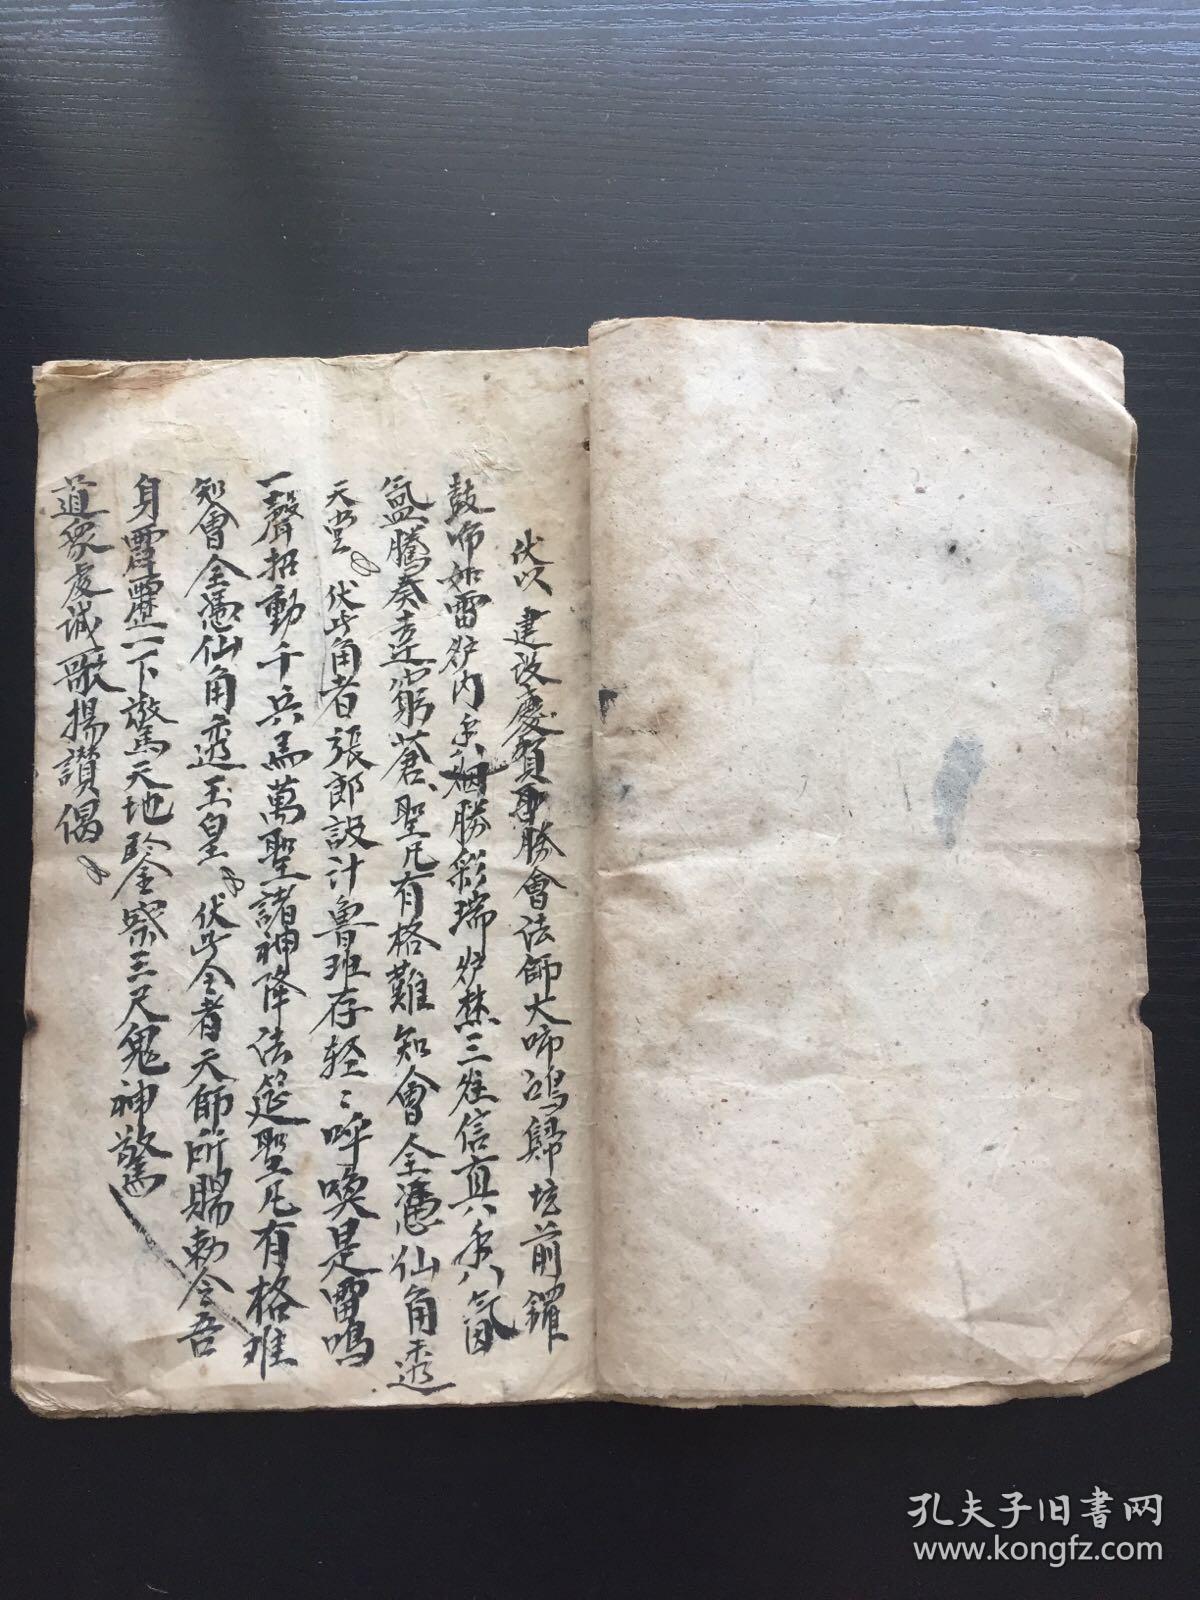 伏以建设慶賀聖勝會法師大啼鴻歸坛前鑼
鼓啼如雷炉内香烟勝彩瑞炉焚三炷信真香氣
氤騰奏達窮蒼聖凡有格難知會全憑仙角透
天堂伏此角者張郎設计魯班存轻〻呼喚是雷鳴
一聲招動千兵馬萬聖諸神降法筵聖凡有格难
知會全憑仙角透玉皇伏此令者天師所賜勅令吾
身霹靂一下驚天地鉴察三尺鬼神驚
道衆虔诚歌揚讃偈
孔夫子旧书网
www.kongfz.com